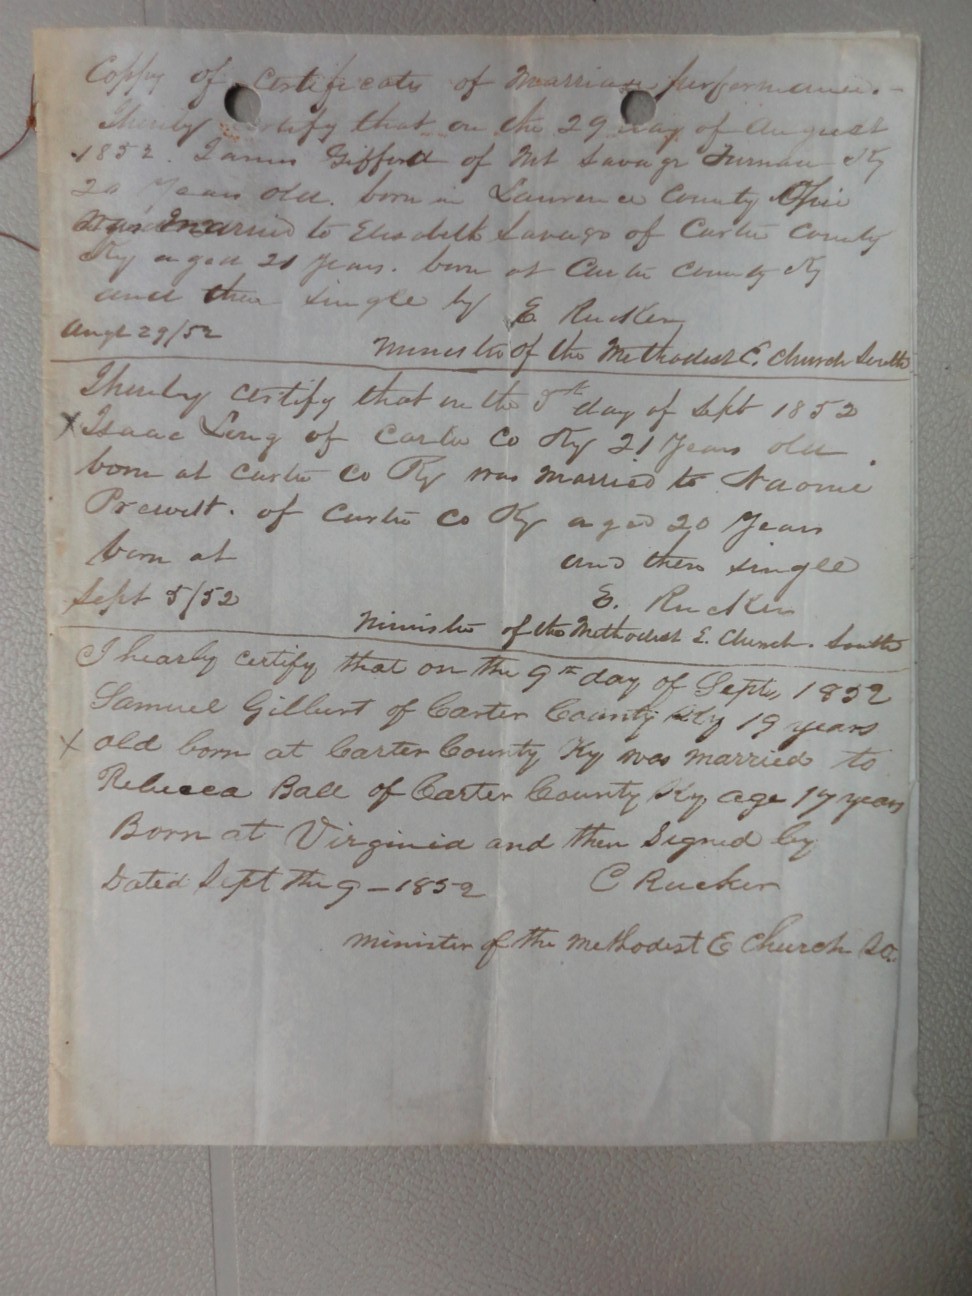 Coppy of Certificate of Marriage performance. -
I hereby certify that on the 29 day of August
1852. James Gifford of Mt Savage Furnace Ky
20 Years old. born in Lawrence County Ohio
was married to Elisabeth Savage of Carter County
Ky aged 21 Years. born at Carter County Ky
and then single by E. Rucker
Augt 29/52
Minister of the Methodist E. Church South.
I hereby certify that on the 5th day of Sept 1852
x Isaac Long of Carter Co Ky 21 Years old
born at Carter Co Ky was married to Naomi
Prewitt. of Carter Co Ky aged 20 Years
born at and then single
Sept 5/52 E. Rucker
Minister of the Methodist E. Church. South
I hearby certify that on the 9th day of Sept, 1852
Samuel Gilbert of Carter County Ky 19 years
x old born at Carter County Ky was married to
Rebecca Ball of Carter County Ky age 17 years
Born at Virginia and then Signed by
Dated Sept the 9 - 1852 C Rucker
minister of the methodist E Church So.